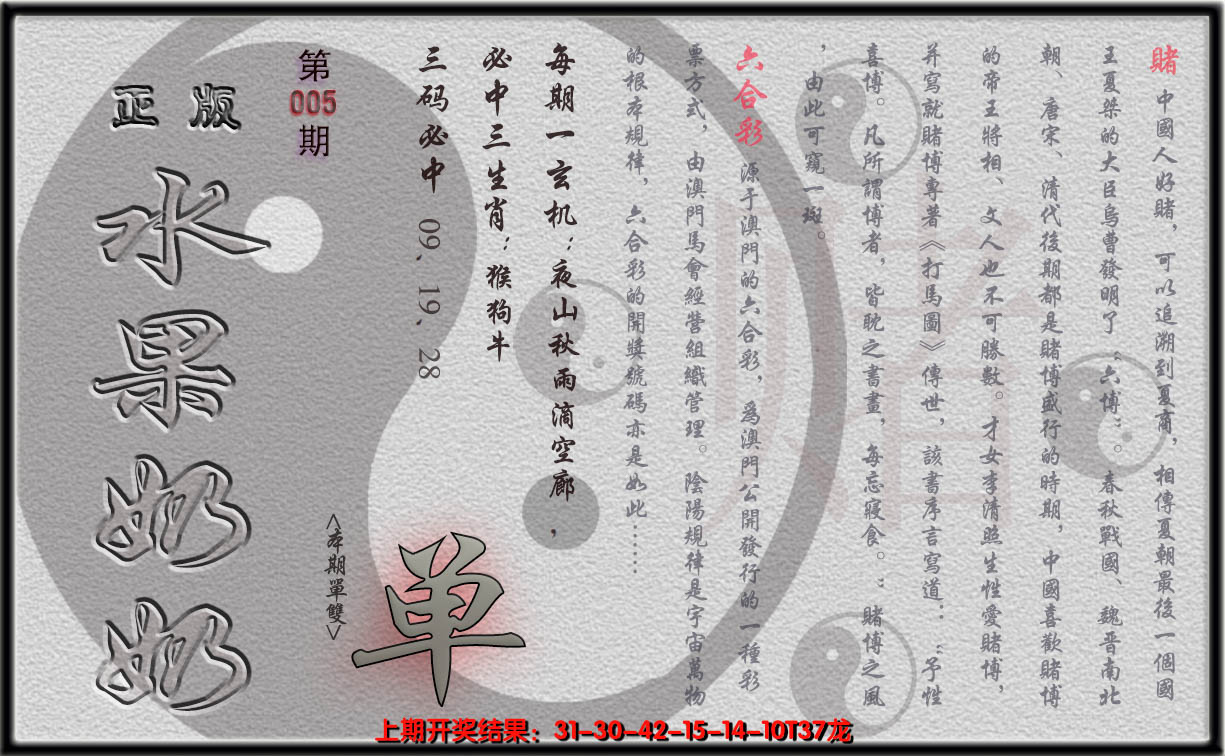 賭 中國人好賭，可以追溯到夏商，相傳夏朝最後一個國
王夏桀的大臣烏曹發明了“六博”。春秋戰國、魏晋南北
朝、唐宋、清代後期都是賭博盛行的時期，中國喜歡賭博
的帝王將相、文人也不可勝數。才女李清照生性愛賭博，
并寫就賭博專著《打馬圖》傳世，該書序言寫道：“予性
喜博。凡所謂博者，皆耽之書畫，每忘寢食。”賭博之風
，由此可窺一斑。
六合彩 源于澳門的六合彩，爲澳門公開發行的一種彩
票方式，由澳門馬會經營組織管理。陰陽規律是宇宙萬物
的根本規律，六合彩的開獎號碼亦是如此……
每期一玄机：夜山秋雨滴空廊，
必中三生肖：猴狗牛
三码必中 09、19、28
第005期
<本期單雙>
单
正版
水果奶奶
上期开奖结果：31-30-42-15-14-10T37龙